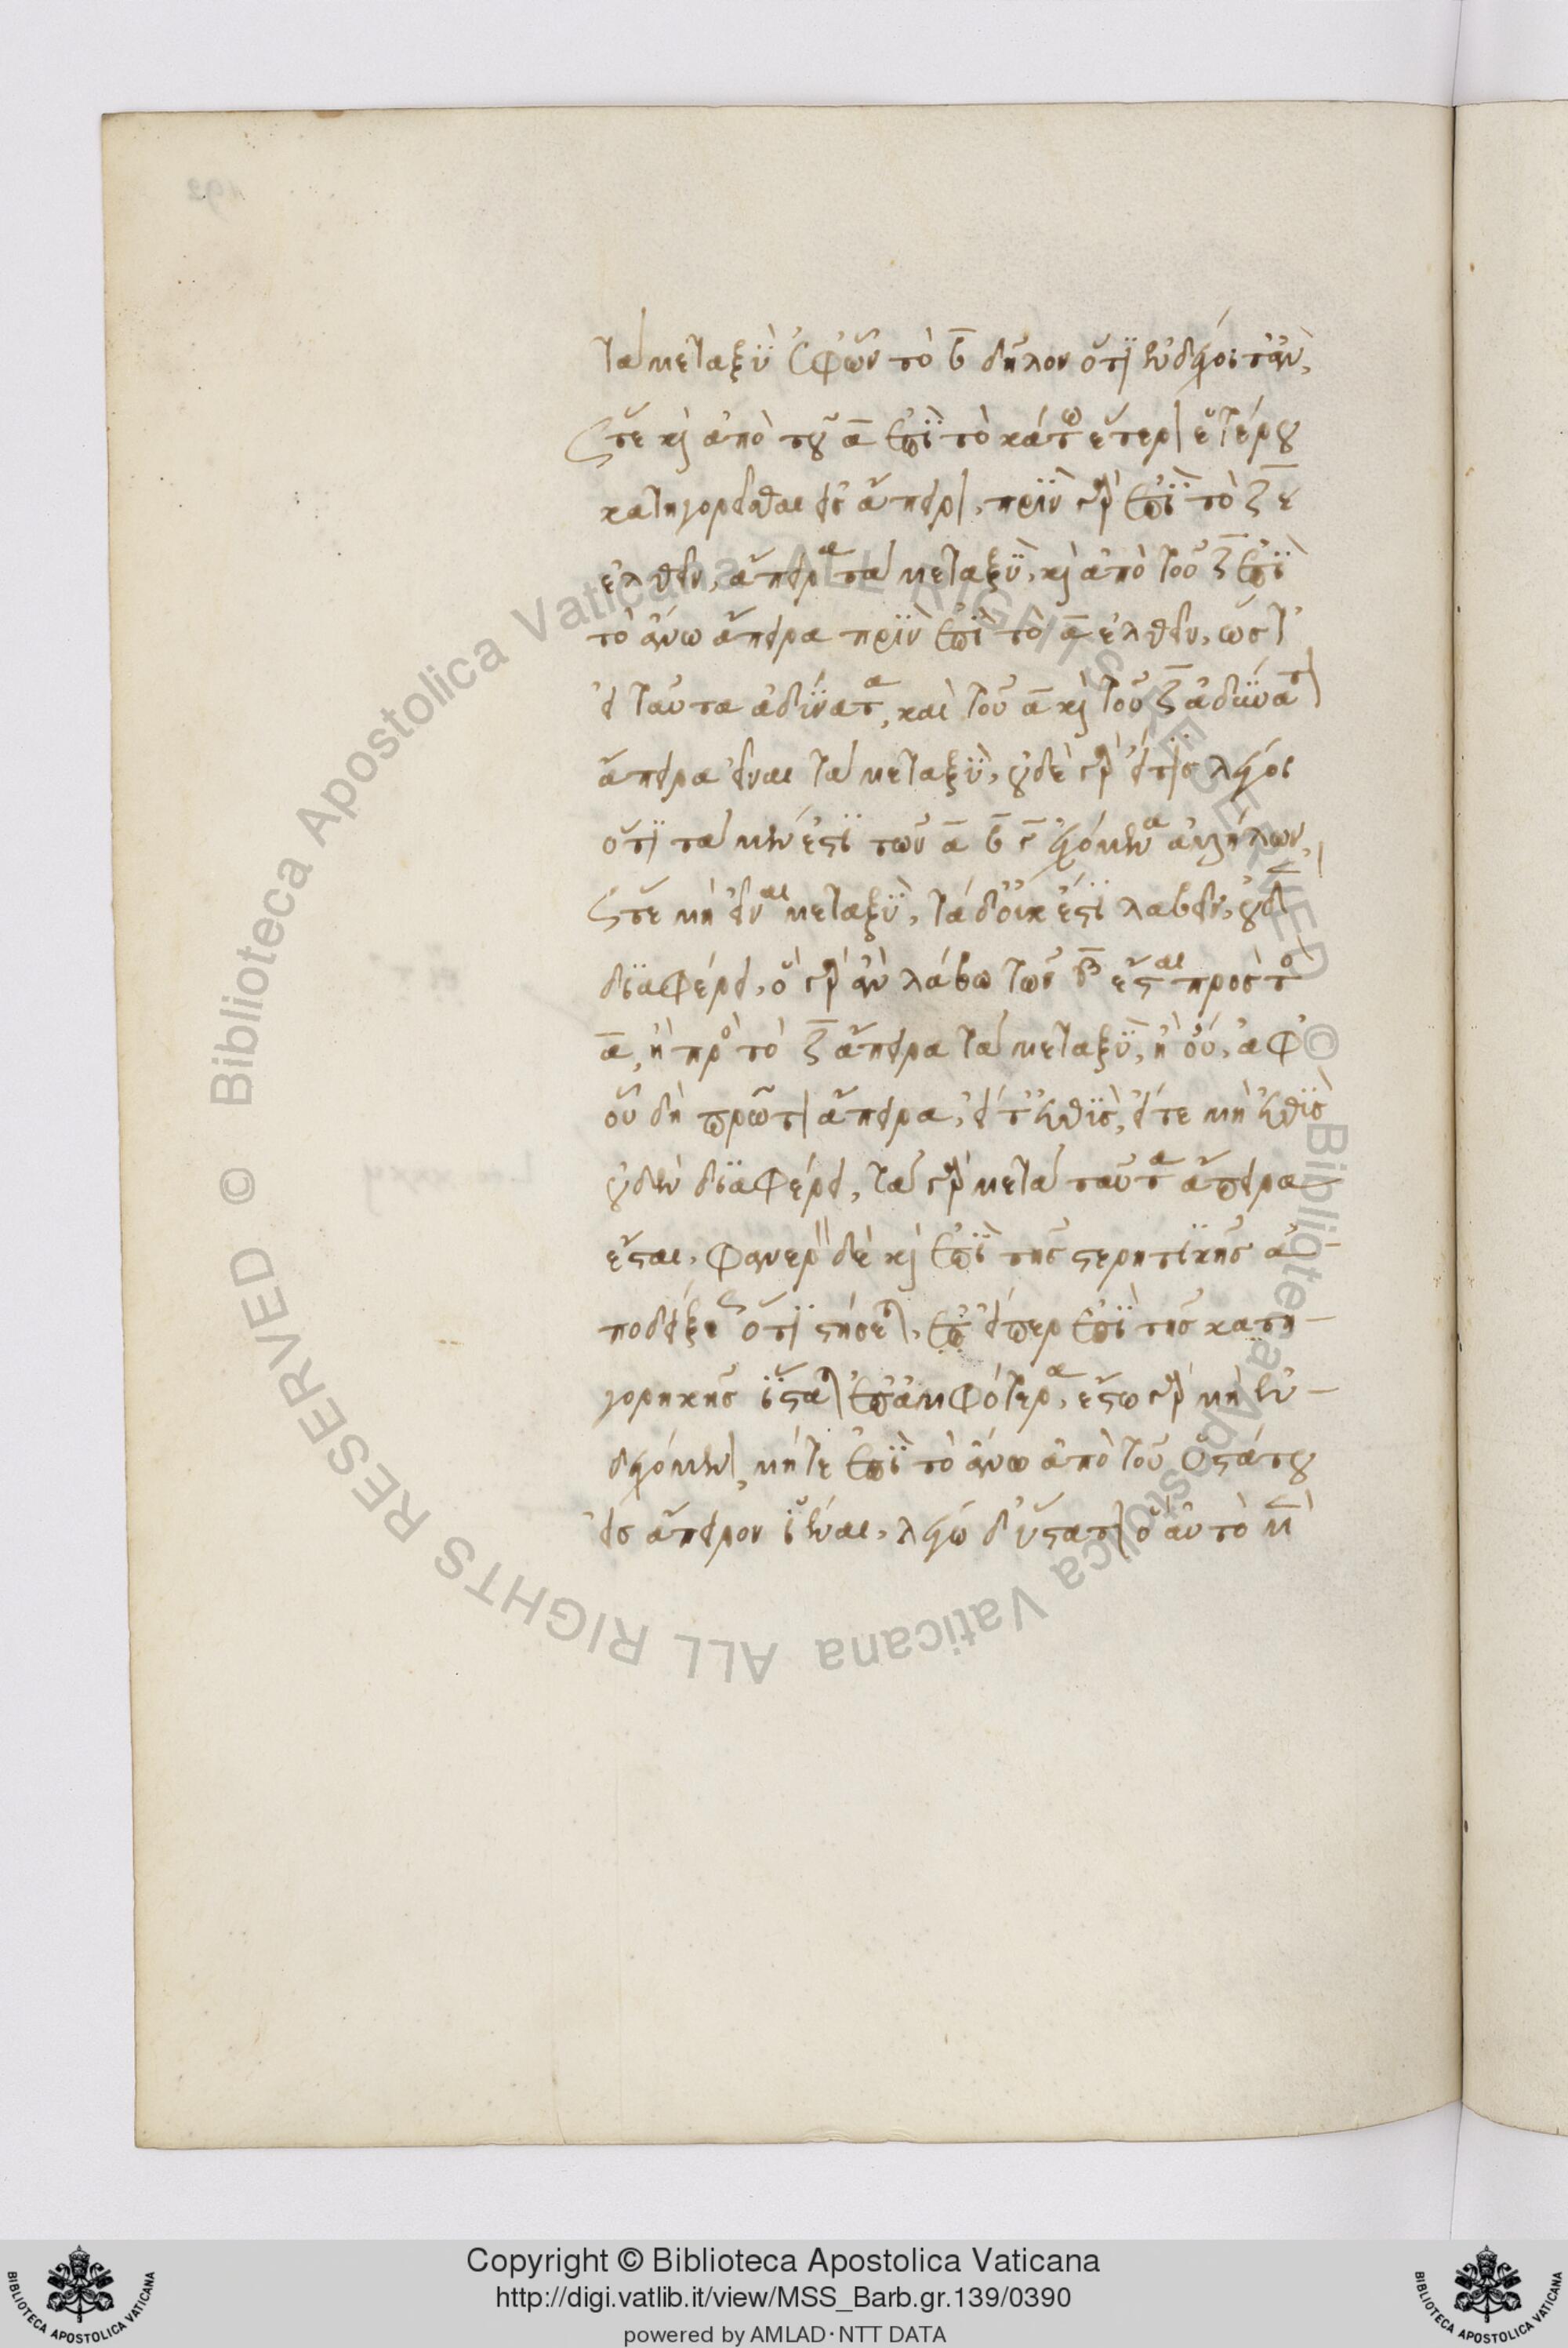 τὰ μεταξὺ ὧν τὸ β δῆλον ὅτι ἐνδέχοιτ' ἂν,
ὥστε καὶ ἀπὸ τοῦ α ἐπὶ τὸ κάτω ἕτερον ἑτέρου
κατηγορεῖσθαι εἰς ἄπειρον, πρὶν γὰρ ἐπὶ τὸ ζ
ἐλθεῖν, ἄπειρα τὰ μεταξὺ, καὶ ἀπὸ τοῦ ζ ἐπὶ
τὸ ἄνω ἄπειρα πρὶν ἐπὶ τὸ α ἐλθεῖν, ὥστ'
εἰ ταῦτα ἀδύνατα, καὶ τοῦ α καὶ τοῦ ζ ἀδύνατον
ἄπειρα εἶναι τὰ μεταξὺ, οὐδὲ γὰρ εἴ τις λέγοι
ὅτι τὰ μέν ἐστι τῶν α β γ ἐχόμενα ἀλλήλων,
ὥστε μὴ εἶναι μεταξὺ, τὰ δ' οὐκ ἔστι λαβεῖν, οὐδὲν
διαφέρει, ὃ γὰρ ἂν λάβω τῶν β ἔσται πρὸς τὸ
α, ἢ πρὸς τὸ ζ ἄπειρα τὰ μεταξὺ, ἢ οὔ, ἀφ'
οὗ δὴ πρῶτον ἄπειρα, εἴτ' εὐθὺς, εἴτε μὴ εὐθὺς
οὐδὲν διαφέρει, τὰ γὰρ μετὰ ταῦτα ἄπειρα
ἔσται. φανερὸν δὲ καὶ ἐπὶ τῆς στερητικῆς ἀ-
ποδείξεως ὅτι στήσεται, εἴπερ ἐπὶ τῆς κατη-
γορικῆς ἵσταται ἐπ' ἀμφότερα, ἔστω γὰρ μὴ ἐν-
δεχόμενον, μήτε ἐπὶ τὸ ἄνω ἀπὸ τοῦ ὑστάτου
εἰς ἄπειρον ἰέναι, λέγω δ' ὕστατον ὃ αὐτὸ μὲν